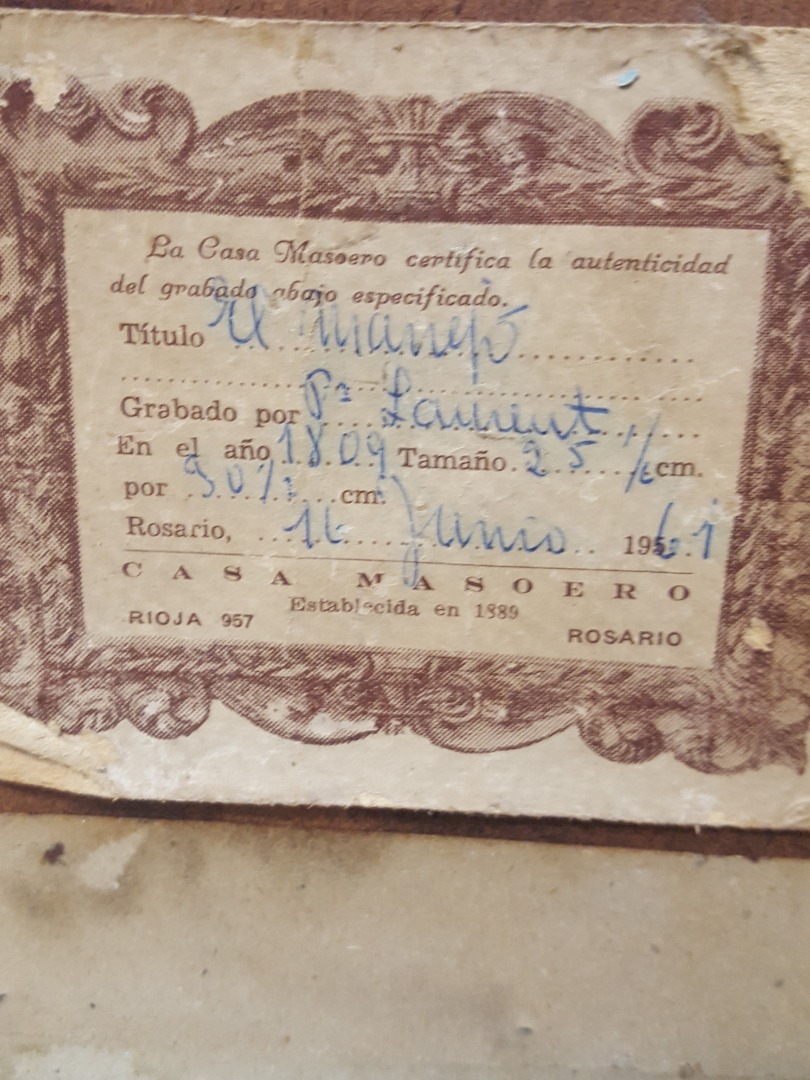 La Casa Masoero certifica la autenticidad
del grabado abajo especificado.
Título El manejo
Grabado por Pre Laurent
En el año 1809 Tamaño 25 1/2 cm.
por 30 1/2 cm.
Rosario, 16 Junio 1961
CASA MASOERO
Establecida en 1889
RIOJA 957 ROSARIO